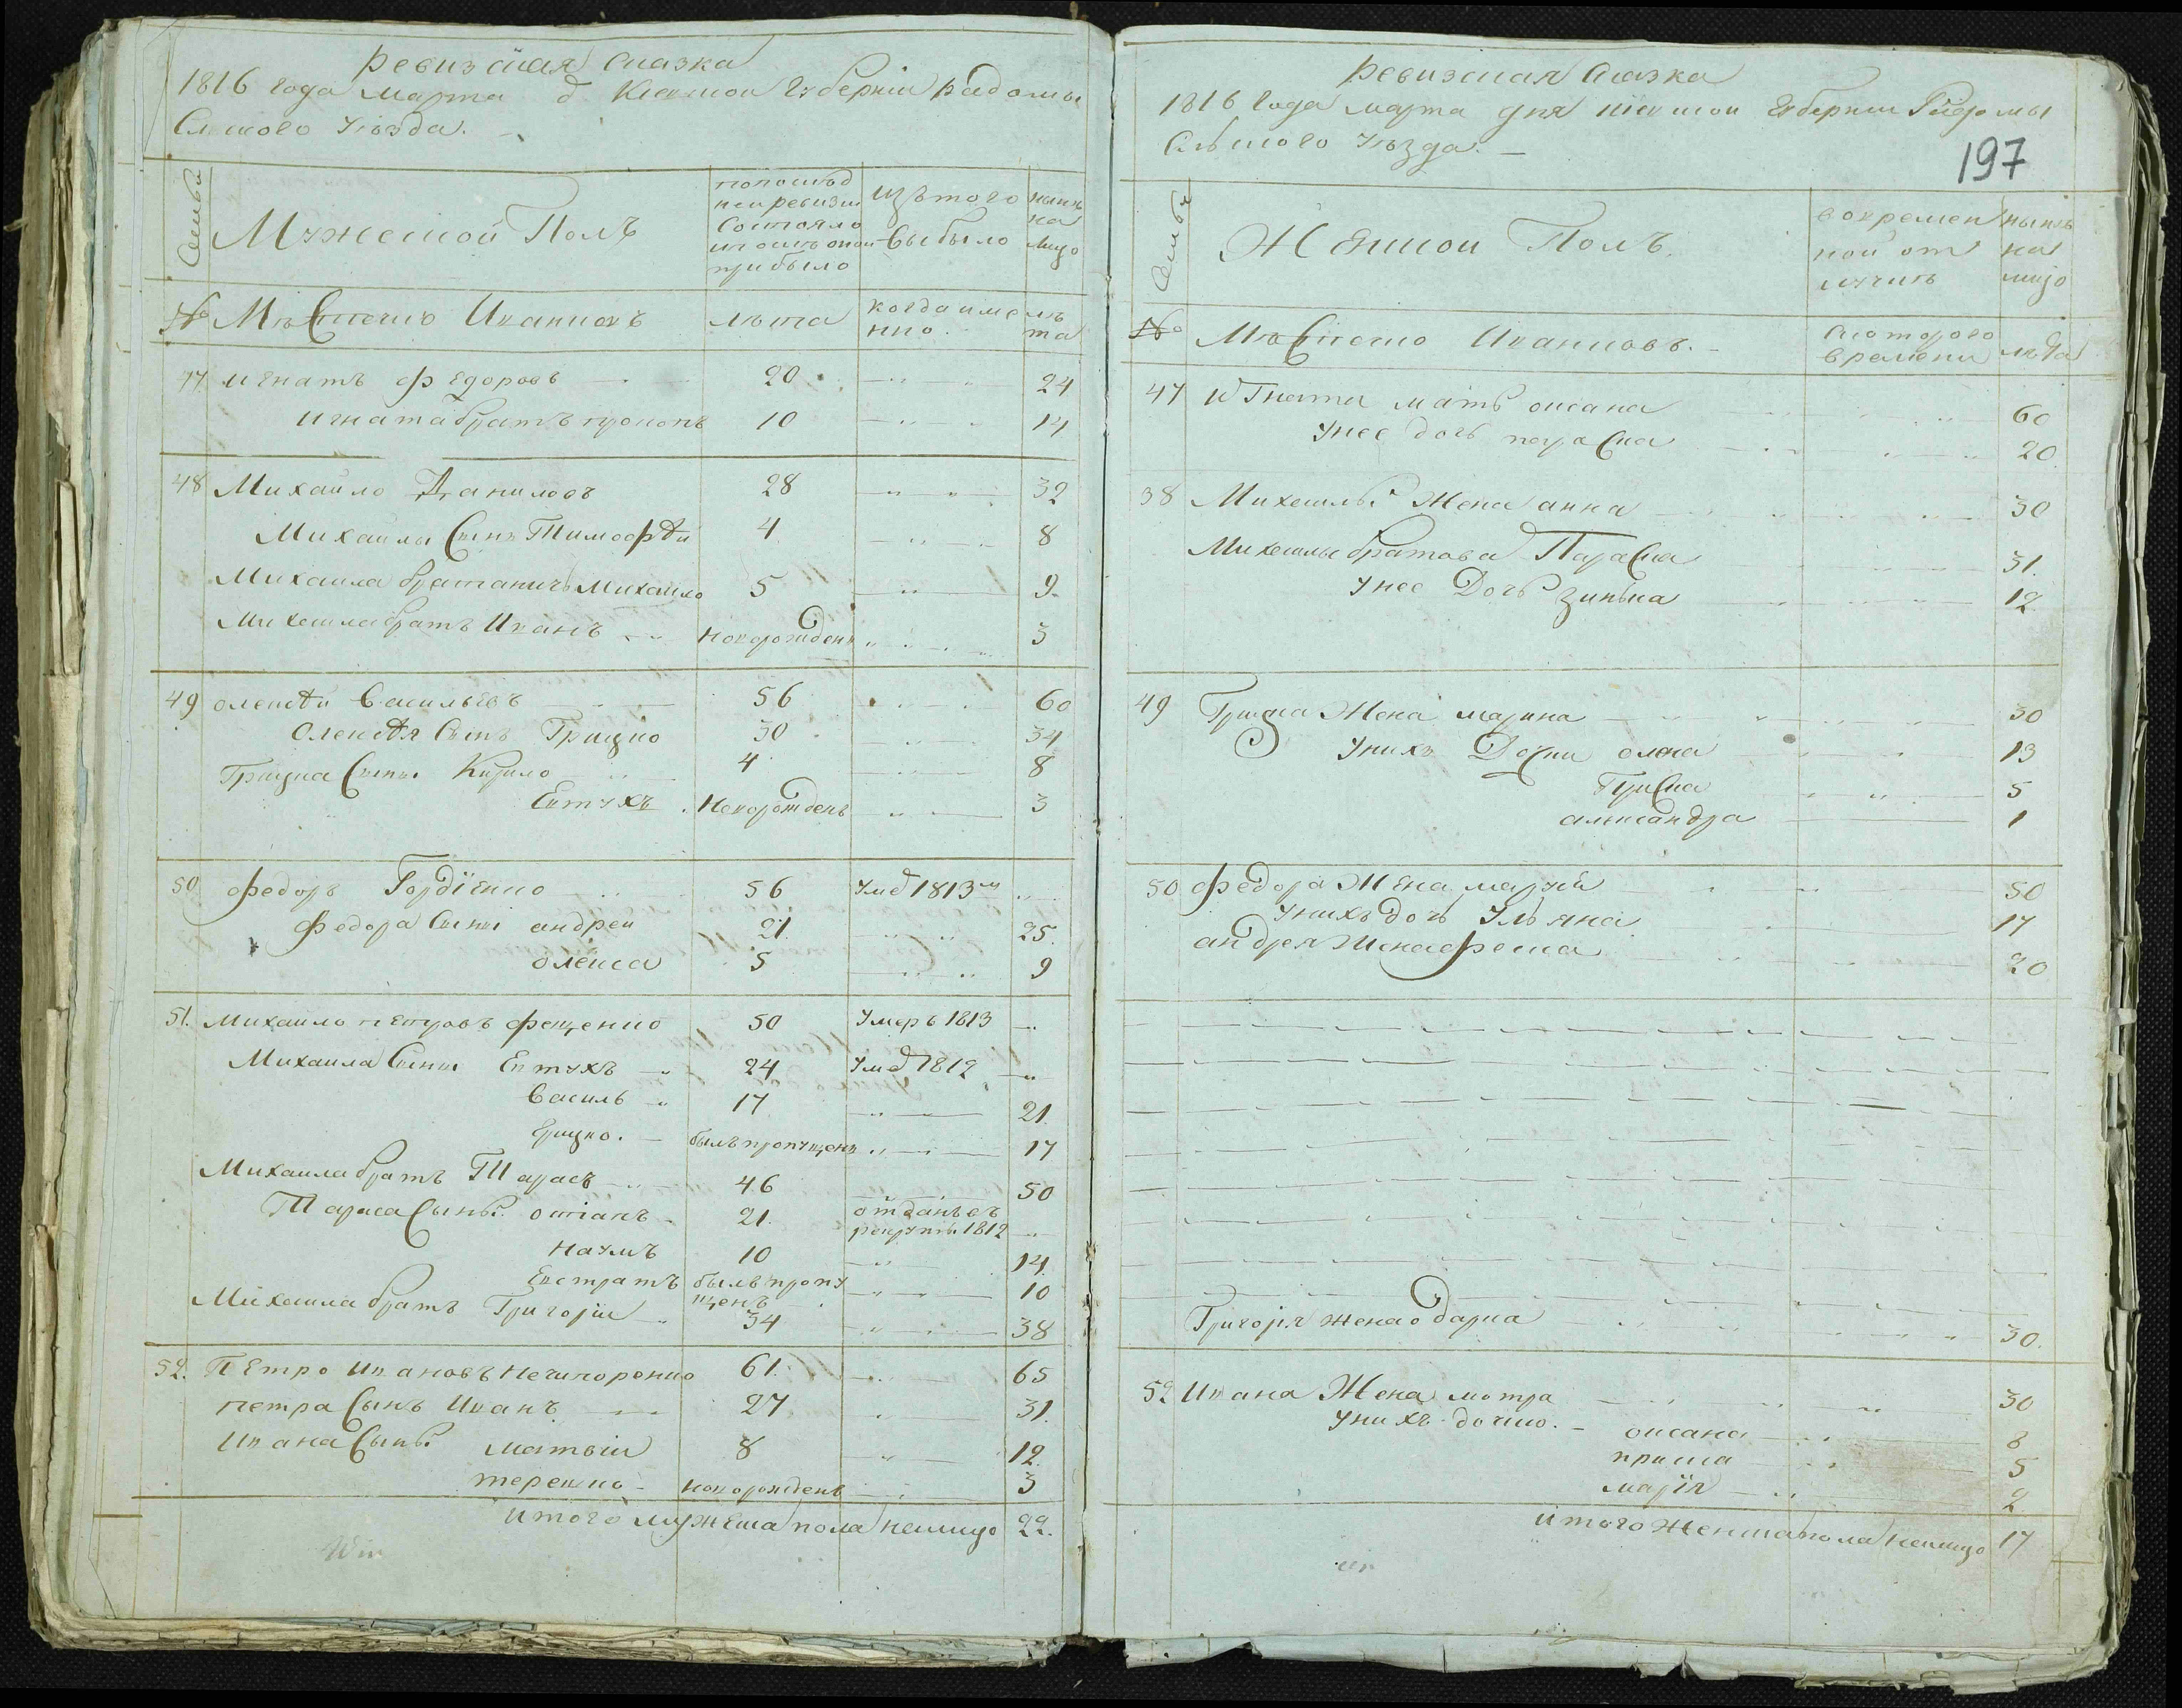 Ревизская Сказка
1816 года марта д Киевской Губернии Радомы
Слского уѣзда.
Семьи
Мужеской Полъ
попослѣд
ней ревизии
Состояло
и послѣ оной
прибыло
Изъ того
выбыло
нынѣ
на
лицо
№ Мѣстечко Иванковъ
лѣта
когда име
нно
лѣ
та
47 Игнатъ Федоровъ 20 24
Игната братъ прокопъ 10 14
48 Михайло Даниловъ 28 32
Михайлы Сынъ Тимофѣй 4 8
Михаила братаничъ Михайло 5 9
Михаила братъ Иванъ новорожденъ 3
49 Олексѣй Васильевъ 56 60
Олексѣя Сынъ Грицко 30 34
Грицка Сыны Кирило 4 8
Евтухъ Новорожденъ 3
50 Федоръ Гордїенко 56 Умд 1813
Федора Сыны андрей 21 25
олекса 5 9
51. Михайло петровъ фещенко 50 Умеръ 1813
Михаила Сыны Евтухъ 24 Умд 1812
Василь 17 21
Грицко. былъ пропущенъ 17
Михаила братъ Тарасъ 46 50
Тараса Сыны: 21 отданъ въ
рекруты 1812
Наумъ 10 14
Евстратъ былъ пропу
щенъ 10
Михаила братъ Григорїй 34 38
52. Петро Ивановъ Нечипоренко 61 65
петра Сынъ Иванъ 27 31
Ивана Сыны матвїй 8 12
терешко новорожденъ 3
Итого мужеска пола налицо 22.
Ревизская Сказка
1816 Года марта дня Киевской Губернии Радомы
Слъского уѣзда.
197
Семьи
Женской Полъ.
во времен
ной от
лучкѣ
нынѣ
на
лицо
№ Мѣстечко Иванковъ.
Скоторого
времени
лѣта
47 Игната мать оксана 60
Унее дочь параска 20
38 Михайлы Жена анна 30
Михайлы братова Параска 31
Унее Дочь зинька 12
49 Грицка Жена марина 30
Унихъ Дочки олена 13
Приска 5
александра 1
50 Федора Жена марїя 50
Унихъ дочь Ульяна 17
андрея Жена феска 20
Григорїя жена одарка 30
52 Ивана Жена мотра 30
Унихъ дочки. оксана 8
приска 5
марїя 2
Итого Женска пола налицо 17